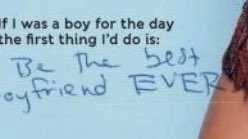 If I was a boy for the day
the first thing I'd do is:
Be The best
oyfriend EVER